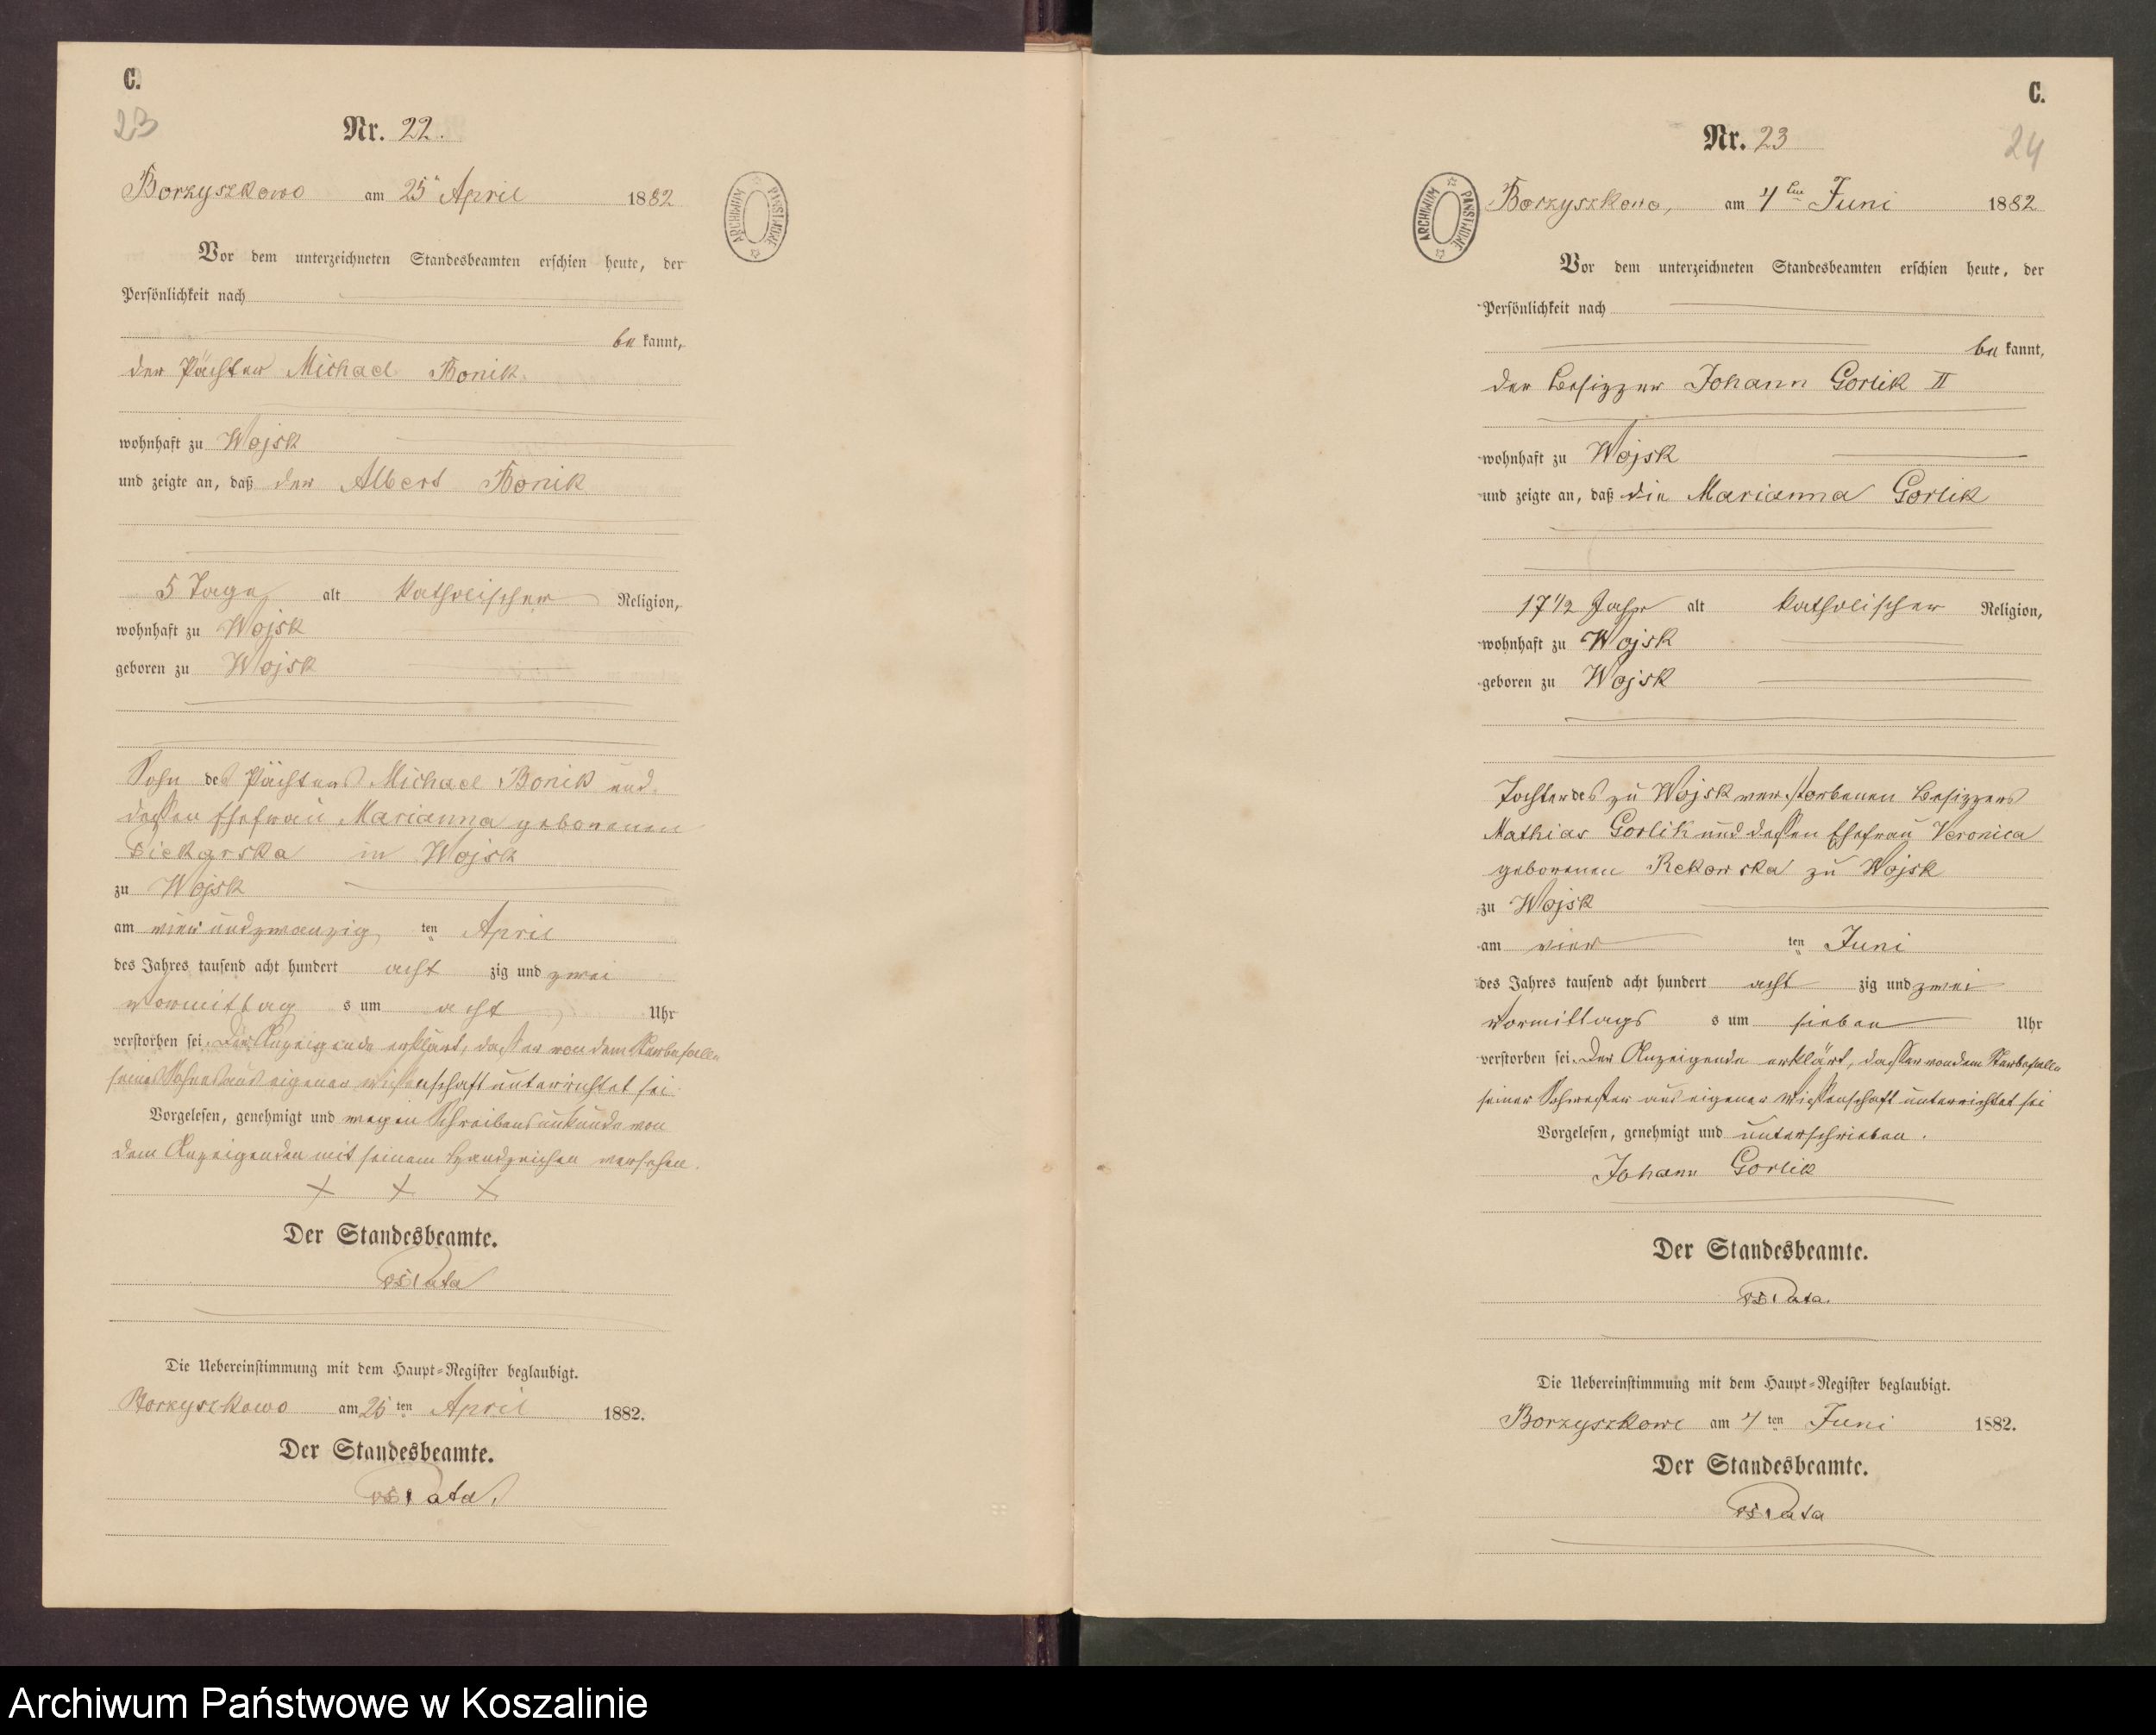 C.
23
Nr. 22.
Borzyszkowo am 25 April 1882
ARCHIWUM PAŃSTWOWE
Vor dem unterzeichneten Standesbeamten erschien heute, der
Persönlichkeit nach
be kannt,
der Pächter Michael Bonik
wohnhaft zu Wojsk
und zeigte an, daß der Albert Bonik
5 Tage alt katholischer Religion,
wohnhaft zu Wojsk
geboren zu Wojsk
Sohn des Pächters Michael Bonik und
dessen Ehefrau Marianna geborenen
Piekarska in Wojsk
zu Wojsk
am vier und zwanzig ten April
des Jahres tausend acht hundert acht zig und zwei
vormittag s um acht Uhr
verstorben sei. Der Anzeigende erklärt, dass er von dem Sterbefalle
seines Sohnes aus eigener Wissenschaft unterrichtet sei.
Vorgelesen, genehmigt und wegen Schreibensunkunde von
dem Anzeigenden mit seinem Handzeichen versehen.
+ + +
Der Standesbeamte.
Die Uebereinstimmung mit dem Haupt-Register beglaubigt.
Borzyszkowo am 25 ten April 1882.
Der Standesbeamte.
C.
24
Nr. 23
ARCHIWUM PAŃSTWOWE
Borzyszkowo, am 4 ten Juni 1882
Vor dem unterzeichneten Standesbeamten erschien heute, der
Persönlichkeit nach
be kannt,
der Besizzer Johann Gorlik II
wohnhaft zu Wojsk
und zeigte an, daß die Marianna Gorlik
17 1/2 Jahr alt katholischer Religion,
wohnhaft zu Wojsk
geboren zu Wojsk
Tochter des zu Wojsk verstorbenen Besizzers
Mathias Gorlik und dessen Ehefrau Veronica
geborenen Rekowska zu Wojsk
zu Wojsk
am vier ten Juni
des Jahres tausend acht hundert acht zig und zwei
vormittags s um sieben Uhr
verstorben sei. Der Anzeigende erklärt, dass er von dem Sterbefalle
seiner Schwester aus eigener Wissenschaft unterrichtet sei
Vorgelesen, genehmigt und unterschrieben.
Johann Gorlik
Der Standesbeamte.
Die Uebereinstimmung mit dem Haupt-Register beglaubigt.
Borzyszkowo am 4 ten Juni 1882.
Der Standesbeamte.
Archiwum Państwowe w Koszalinie